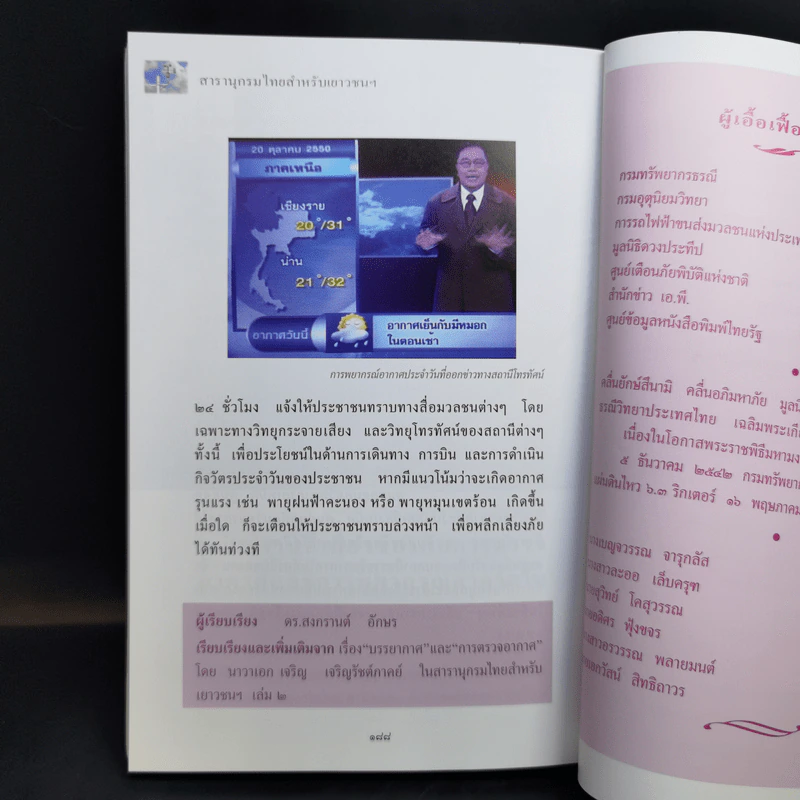 สารานุกรมไทยสำหรับเยาวชนฯ
20 ตุลาคม 2550
ภาคเหนือ
เชียงราย
20°/31°
น่าน
21°/32°
อากาศวันนี้
อากาศเย็นกับมีหมอก
ในตอนเช้า
การพยากรณ์อากาศประจำวันที่ออกข่าวทางสถานีโทรทัศน์
๒๔ ชั่วโมง แจ้งให้ประชาชนทราบทางสื่อมวลชนต่างๆ โดย
เฉพาะทางวิทยุกระจายเสียง และวิทยุโทรทัศน์ของสถานีต่างๆ
ทั้งนี้ เพื่อประโยชน์ในด้านการเดินทาง การบิน และการดำเนิน
กิจวัตรประจำวันของประชาชน หากมีแนวโน้มว่าจะเกิดอากาศ
รุนแรง เช่น พายุฝนฟ้าคะนอง หรือ พายุหมุนเขตร้อน เกิดขึ้น
เมื่อใด ก็จะเตือนให้ประชาชนทราบล่วงหน้า เพื่อหลีกเลี่ยงภัย
ได้ทันท่วงที
ผู้เรียบเรียง ดร.สงกรานต์ อักษร
เรียบเรียงและเพิ่มเติมจาก เรื่อง“บรรยากาศ”และ“การตรวจอากาศ”
โดย นาวาเอก เจริญ เจริญรัชต์ภาคย์ ในสารานุกรมไทยสำหรับ
เยาวชนฯ เล่ม ๒
๑๘๘
ผู้เอื้อเฟื้อ
กรมทรัพยากรธรณี
กรมอุตุนิยมวิทยา
การรถไฟฟ้าขนส่งมวลชนแห่งประเท
มูลนิธิดวงประทีป
ศูนย์เตือนภัยพิบัติแห่งชาติ
สำนักข่าว เอ.พี.
ศูนย์ข้อมูลหนังสือพิมพ์ไทยรัฐ
คลื่นยักษ์สึนามิ คลื่นอภิมหาภัย มูลนิ
ธรณีวิทยาประเทศไทย เฉลิมพระเกีย
เนื่องในโอกาสพระราชพิธีมหามง
๕ ธันวาคม ๒๕๔๒ กรมทรัพยา
แผ่นดินไหว ๖.๓ ริกเตอร์ ๑๖ พฤษภาคม
เบญจวรรณ จารุกลัส
งสาวละออ เล็บครุฑ
สุวิทย์ โคสุวรรณ
อดิศร ฟุ้งขจร
สาวอรวรรณ พลายมนต์
สิทธิถาวร